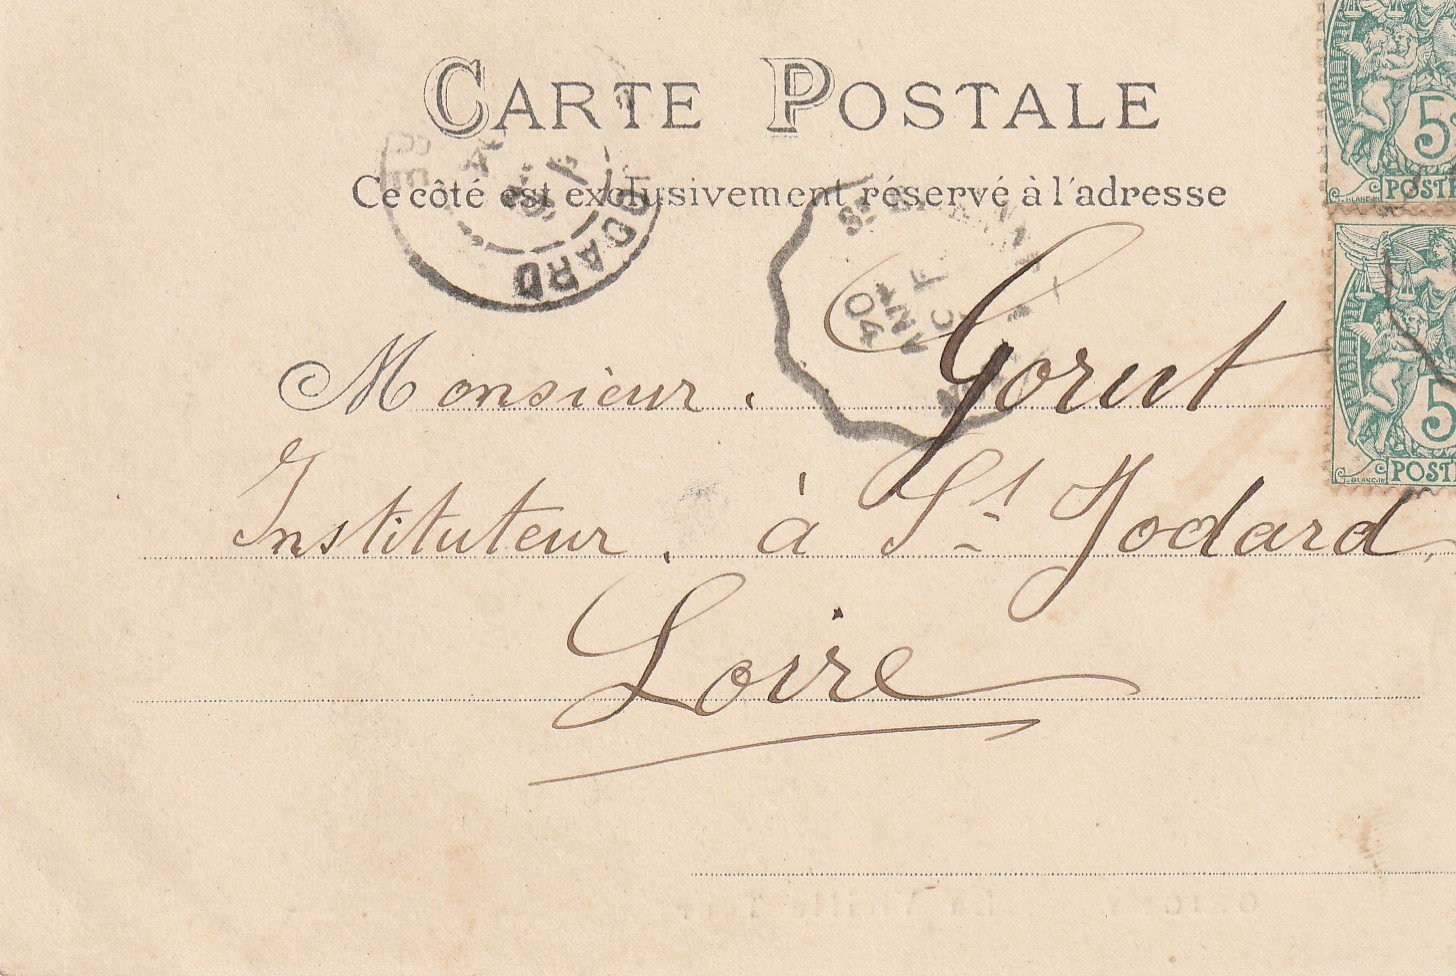 CARTE POSTALE
Ce côté est exclusivement réservé à l'adresse
5
POST
JODARD
St
04
Monsieur. Gorut
Instituteur. à St Jodard,
Loire
5
POST